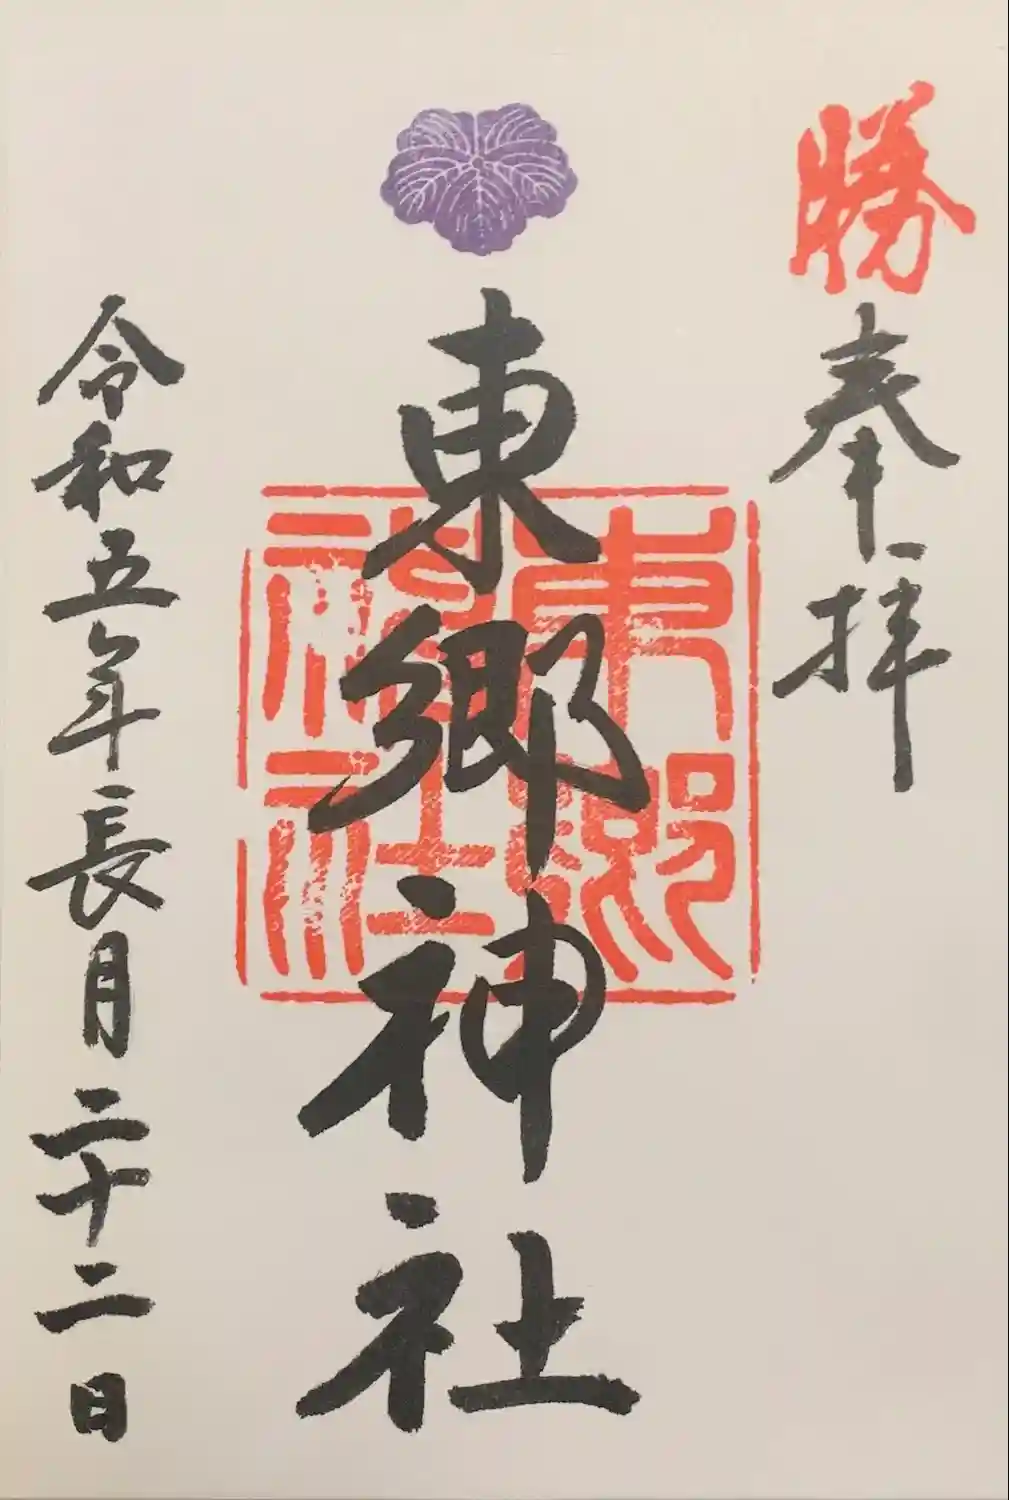 勝
奉拝
東郷神社
東郷
神社
令和五年長月二十二日